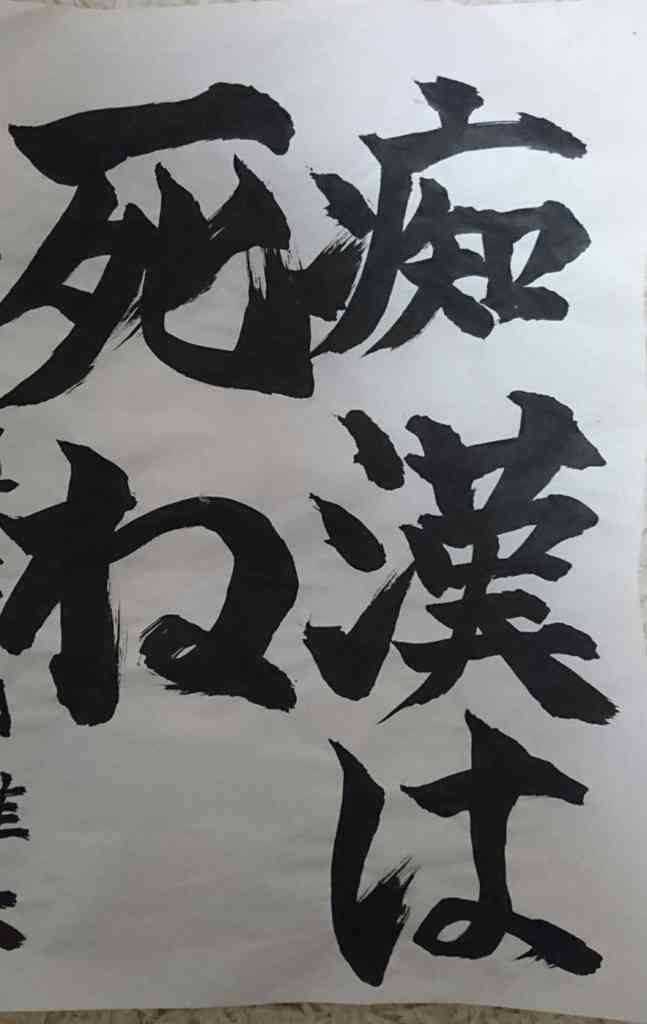 痴漢は
死ね